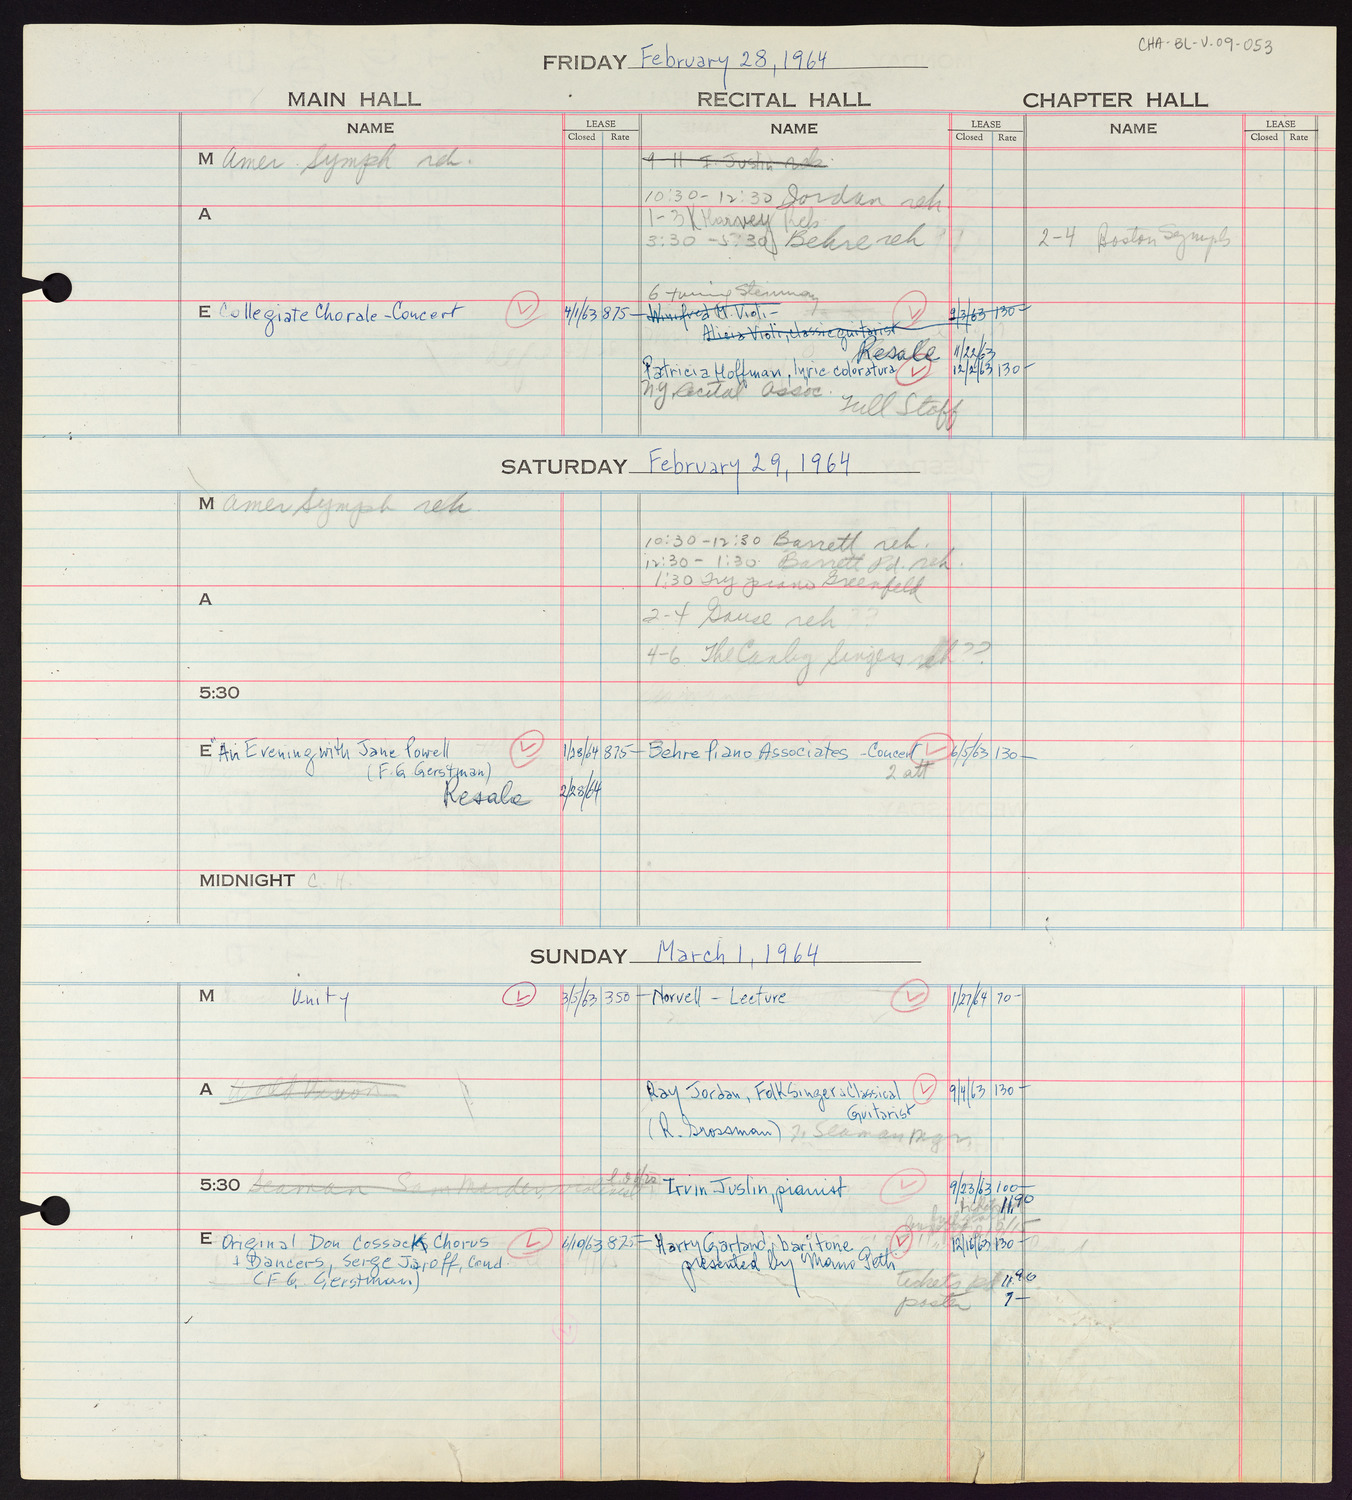 CHA-BL-V-09-053
FRIDAY February 28, 1964
MAIN HALL RECITAL HALL CHAPTER HALL
NAME LEASE Closed Rate NAME LEASE Closed Rate NAME LEASE Closed Rate
M Amer. Symph reh. 9-11 I. Justin reh.
10:30-12:30 Jordan reh
A 1-3 Harvey Reh
3:30-5:30 Behre reh ?? 2-4 Boston Symph
6 tuning Steinway
E Collegiate Chorale-Concert 4/1/63 875- Winifred H. Violi-
9/3/63 130-
Alicia Violi, classic guitarist
Resale 11/22/63
Patricia Hoffman, lyric coloratura 12/2/63 130-
NY Recital Assoc.
Full Staff
SATURDAY February 29, 1964
M Amer Symph reh
10:30-12:30 Barrett reh.
12:30-1:30 Barrett Pd. reh.
1:30 Try piano Greenfeld
A
2-4 Gause reh ??
4-6 The Canby Singers reh ??
5:30
E "An Evening with Jane Powell 1/28/64 875- Behre Piano Associates -Concert 6/5/63 130-
(F.G. Gerstman) 2 att
Resale 2/28/64
MIDNIGHT C. H.
SUNDAY March 1, 1964
M Unity 3/5/63 350- Norvell - Lecture 1/27/64 70-
A Ray Jordan, FolkSinger & Classical 9/4/63 130-
Guitarist
(R. Grossman) Seaman Mgr.
5:30 Seaman Irvin Justin, pianist 9/23/63 100-
11.90
E Original Don Cossack Chorus 6/10/63 875- Harry Garland, baritone 12/16/63 130-
+ Dancers, Serge Jaroff, Cond. presented by Momo Peth
(F.G. Gerstman) tickets pd 11.90
poster 7-